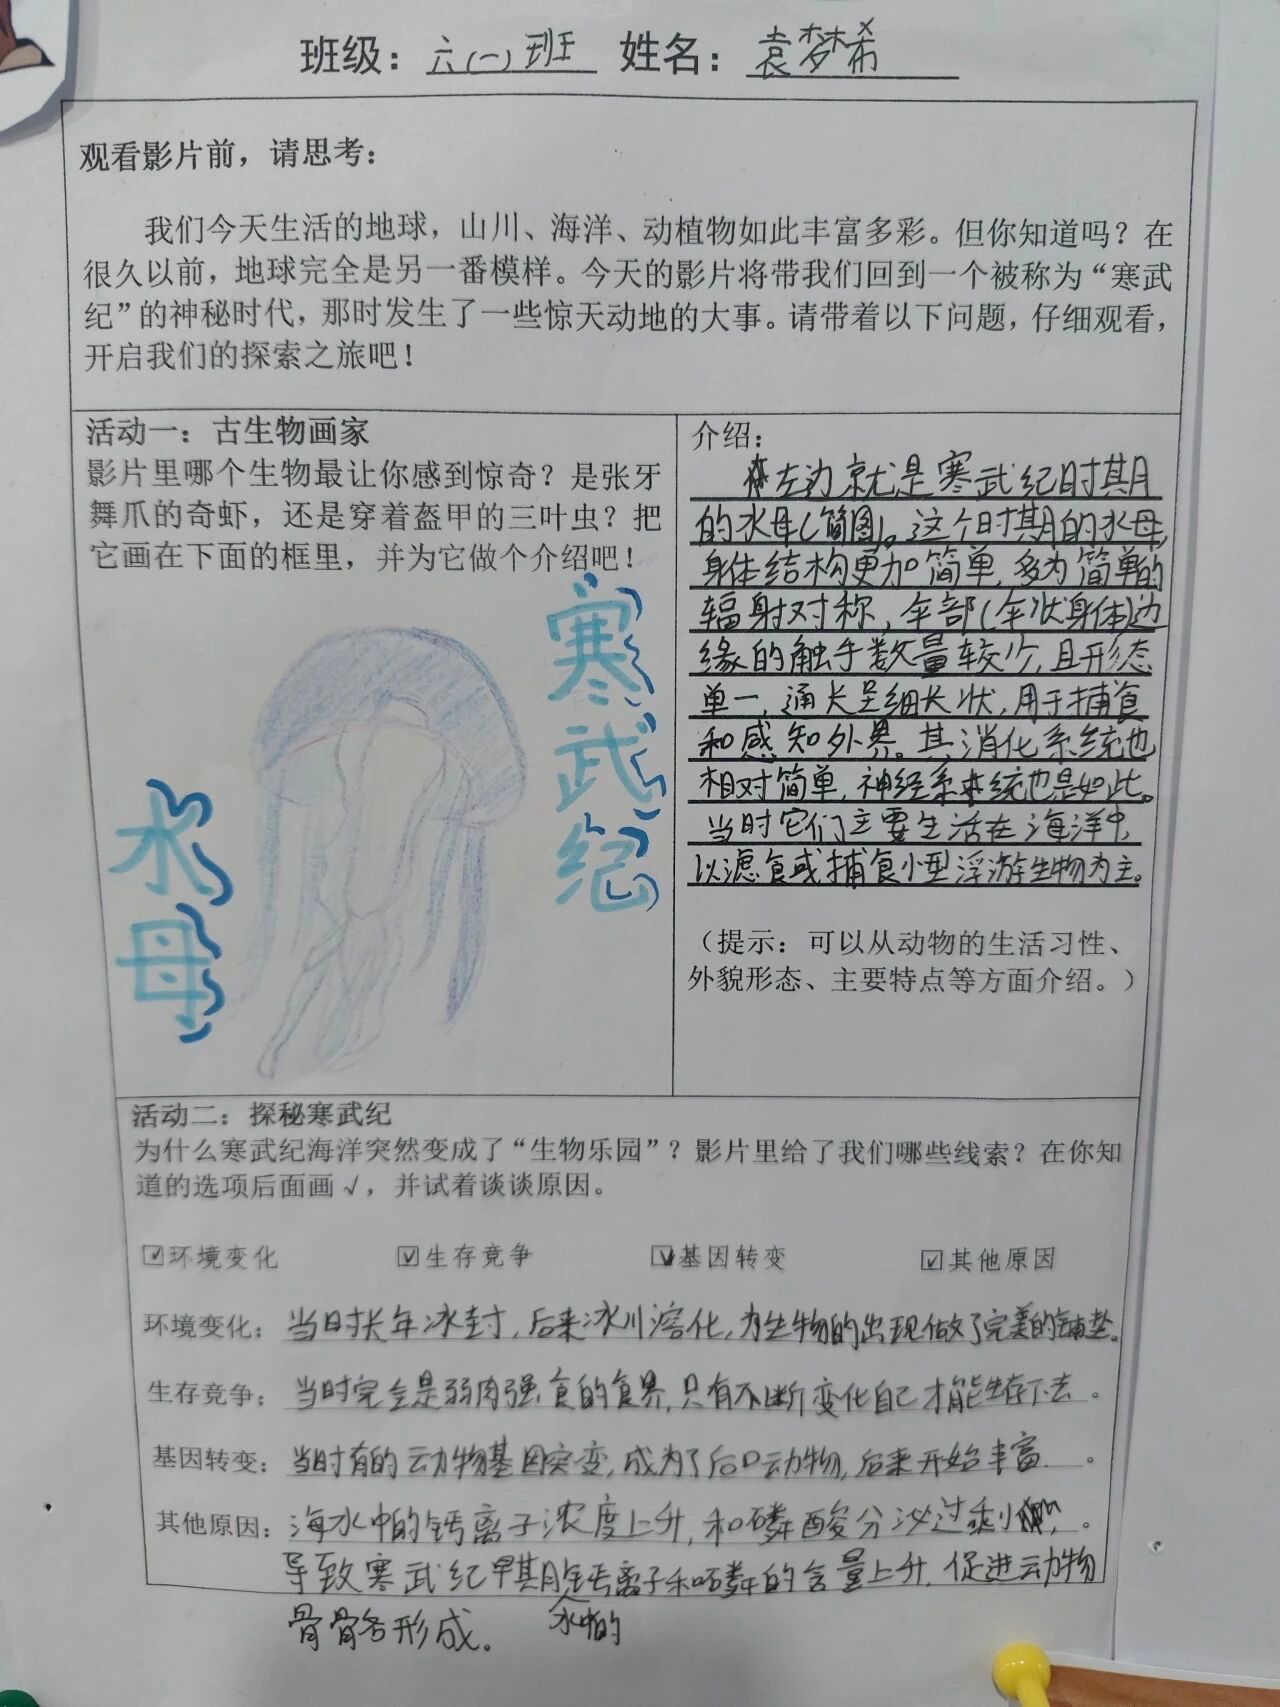 班级：六(一)班 姓名：袁梦希
观看影片前，请思考：
我们今天生活的地球，山川、海洋、动植物如此丰富多彩。但你知道吗？在
很久以前，地球完全是另一番模样。今天的影片将带我们回到一个被称为“寒武
纪”的神秘时代，那时发生了一些惊天动地的大事。请带着以下问题，仔细观看，
开启我们的探索之旅吧！
活动一：古生物画家
影片里哪个生物最让你感到惊奇？是张牙
舞爪的奇虾，还是穿着盔甲的三叶虫？把
它画在下面的框里，并为它做个介绍吧！
寒武纪
水母
介绍：
左边就是寒武纪时期
的水母(简图)。这个时期的水母，
身体结构更加简单，多为简单的
辐射对称，伞部(伞状身体)边
缘的触手数量较少，且形态
单一，通长呈细长状，用于捕食
和感知外界。其消化系统也
相对简单，神经系统也是如此。
当时它们主要生活在海洋中，
以滤食或捕食小型浮游生物为主。
（提示：可以从动物的生活习性、
外貌形态、主要特点等方面介绍。）
活动二：探秘寒武纪
为什么寒武纪海洋突然变成了“生物乐园”？影片里给了我们哪些线索？在你知
道的选项后面画√，并试着谈谈原因。
☑环境变化 ☑生存竞争 ☑基因转变 ☑其他原因
环境变化：当时长年冰封，后来冰川溶化，为生物的出现做了完美的铺垫。
生存竞争：当时完全是弱肉强食的食界，只有不断变化自己才能生存下去。
基因转变：当时有的动物基因突变，成为了后口动物，后来开始丰富。
其他原因：海水中的钙离子浓度上升，和磷酸分泌过剩，。
导致寒武纪早期水中的钙离子和磷的含量上升，促进动物
骨骼形成。